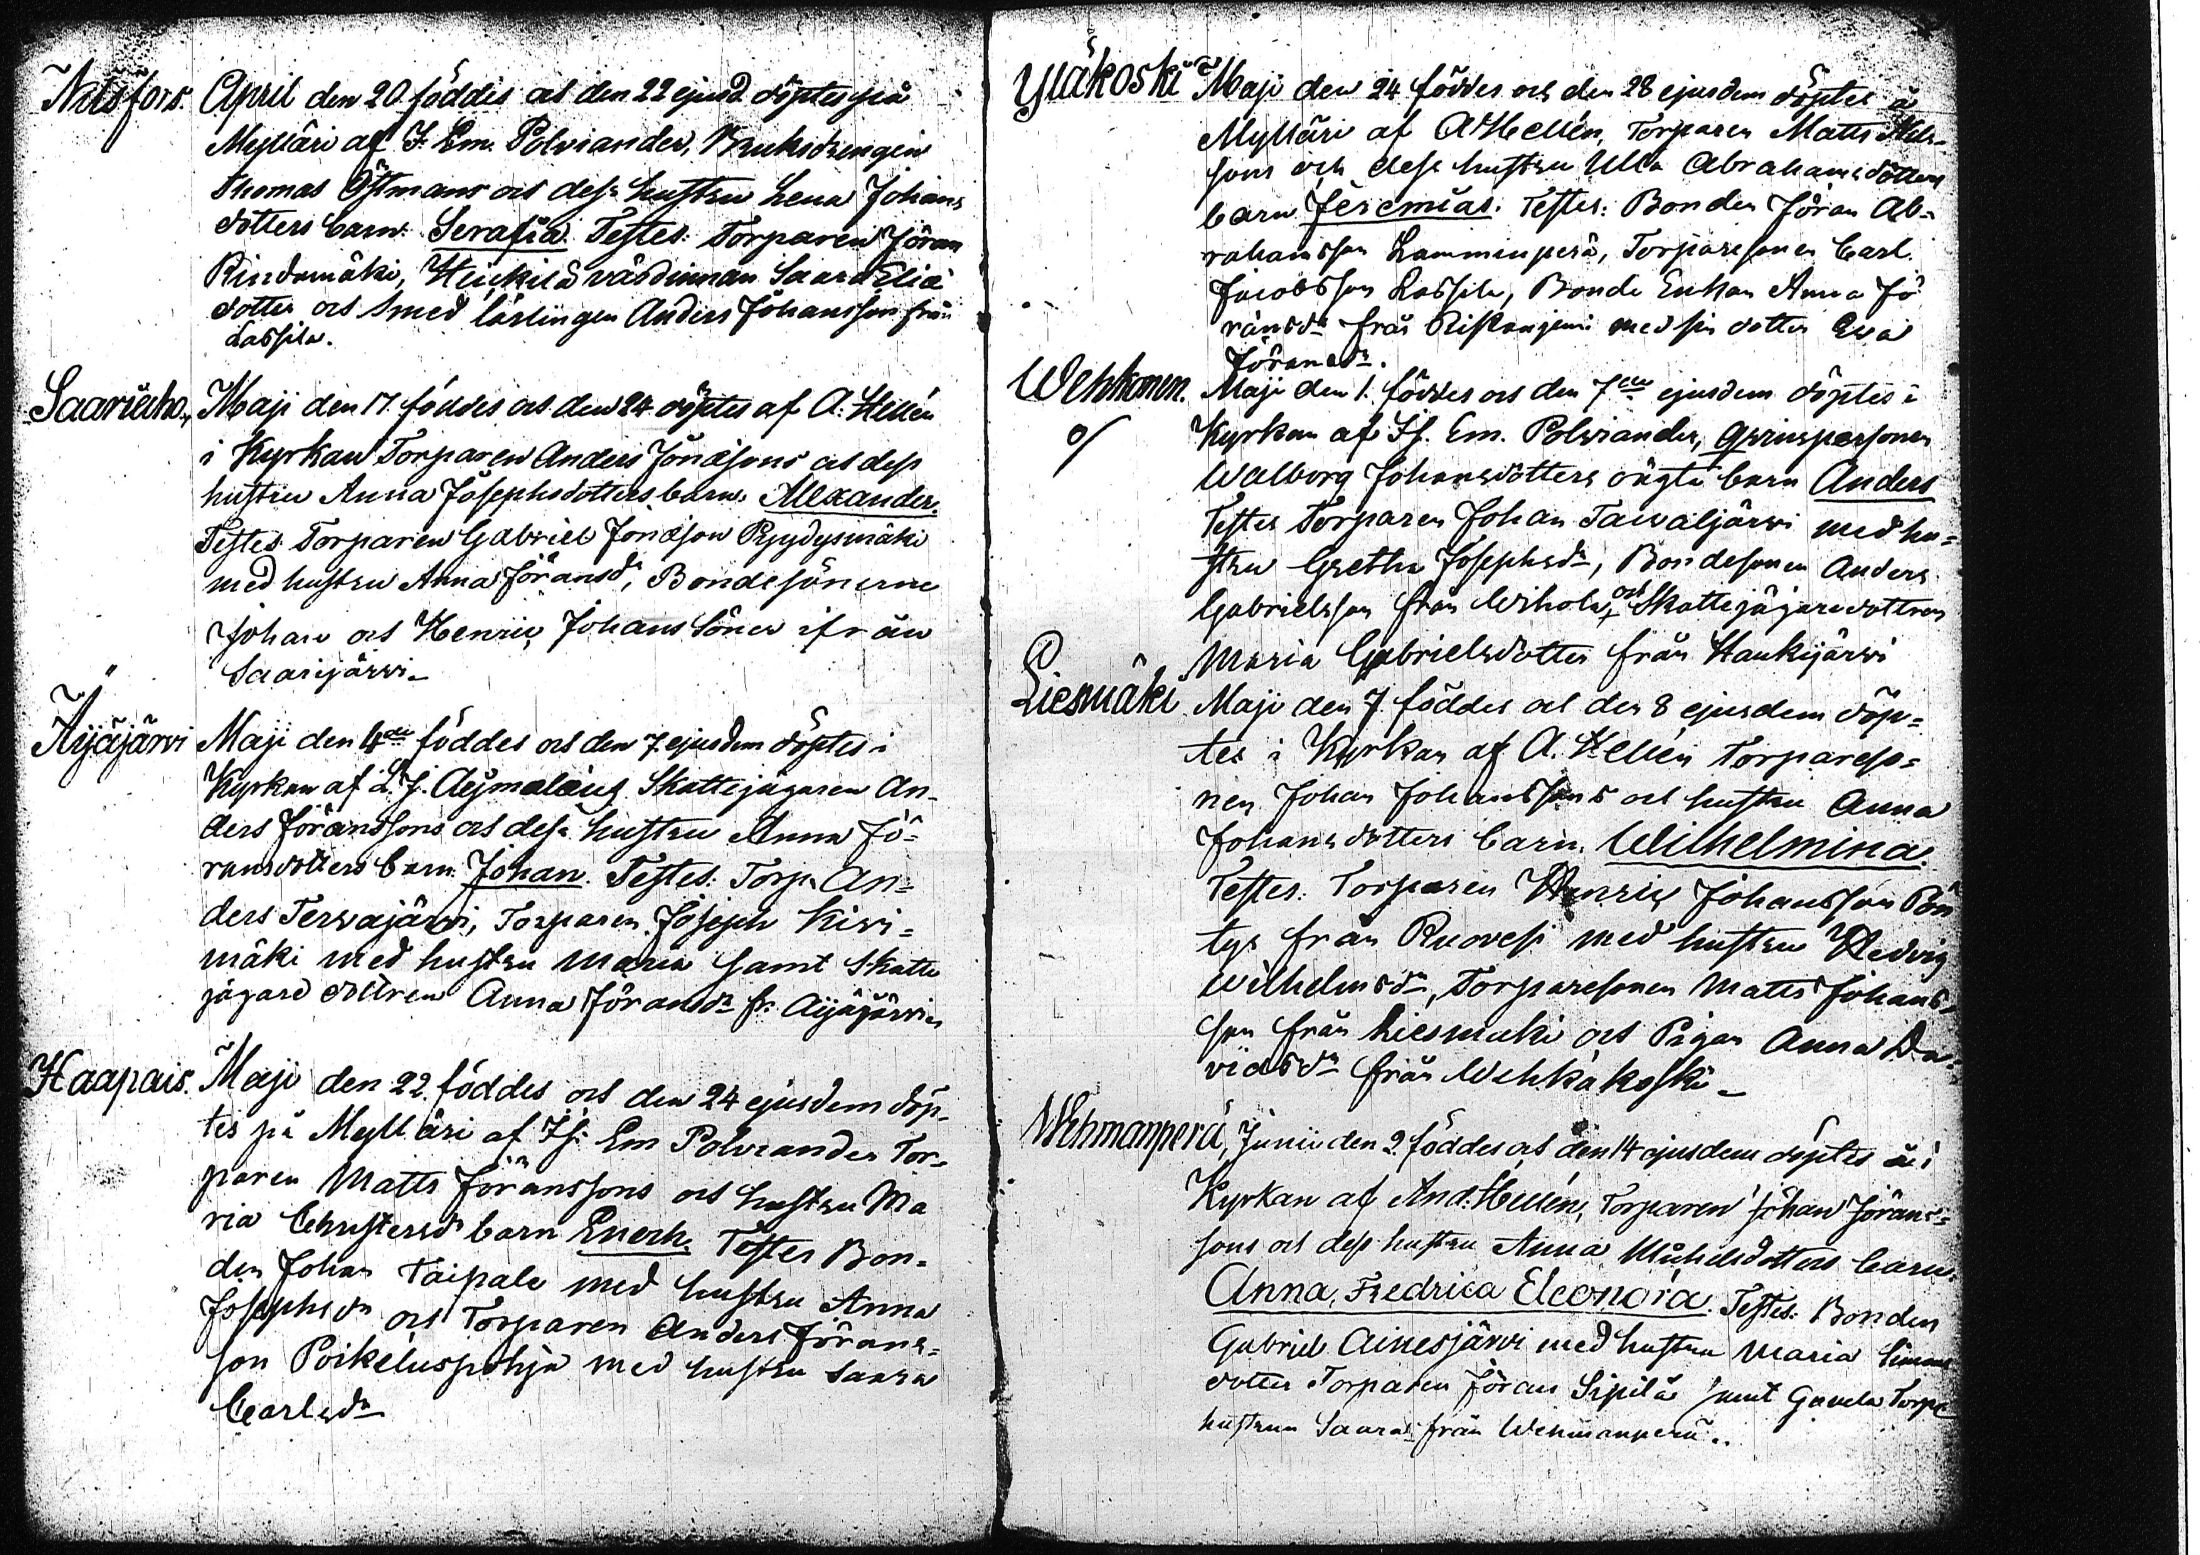 Nilsfors. April den 20 föddis och den 22 ejusd döptes på
Mylläri af J. Em. Polviander, Bruksdrengen
Thomas Östmans och dess hustru Lena Johans
dotters barn Serafia. Testes: Torparen Jöran
Rindamäki, Heickilä värdinnan Saara Elia
dotter och Smed lärlingen Anders Johansson från
Lassila.
Saariaho, Maji den 17. föddes och den 24 döptes af A. Hellén
i Kyrkan Torparen Anders Jonassons och dess
hustru Anna Josephsdotters barn. Alexander.
Testes Torparen Gabriel Jonasson Pyydysmäki
med hustru Anna Jöransdr, Bondesönerne
Johan och Henric Johans Söner ifrån
Saarijärvi.
Äijäjärvi Maji den 4de föddes och den 7 ejusdem döptes i
Kyrkan af L. J. Aejmelæus Skattejägaren An-
ders Jöranssons och dess hustru Anna Jö-
ransdotters barn. Johan. Testes: Torp. An=
ders Tervajärvi, Torparen Joseph Kivi=
mäki med hustru Maria samt Skatte
jägare dottren Anna Jöransdr fr. Äijäjärvi
Haapais. Maji den 22. föddes och den 24 ejusdem döp-
tes på Mylläri af Is: Em Polviander Tor-
paren Matts Jöranssons och hustru Ma
ria Christersdr barn Enoch. Testes Bon-
den Johan Taipale med hustru Anna
Josephsdr och Torparen Anders Jörans=
son Poikeluspohja med hustru Saara
Carlsdr
Yläkoski Maji den 24 föddes och den 28 ejusdem döptes å
Mylläri af A Hellén, Torparen Matts Nils-
sons och dess hustru Ulla Abrahamsdotters
barn Jeremias. Testes: Bonden Jöran Ab-
rahamsson Lamminperä, Torparesonen Carl
Jacobsson Lassila, Bonde Enkan Anna Jö
ransdr från Riskanjemi med sin dotter Eva
Jöransdr.
Wehkonen. Maji den 1. föddes och den 7de ejusdem döptes i
o/ Kyrkan af Is. Em. Polviander, Qvinspersonen
Walborg Johansdotters oägta barn Anders
Testes Torparen Johan Taivaljärvi med hu=
stru Gretha Josephsdr, Bondesonen Anders
Gabrielsson från Wihola, och Skattejägaredottren
Maria Gabrielsdotter från Haukijärvi
Liesmäki Maji den 7. föddes och den 8 ejusdem döp=
tes i Kyrkan af A. Hellén Torpareso=
nen Johan Johanssons och hustru Anna
Johansdotters barn. Wilhelmina.
Testes. Torparen Henric Johansson Pön
tys från Ruovesi med hustru Hedvig
Wilhelmsdr, Torparesonen Matts Johans
son från Liesmäki och Pigan Anna Da-
vidsdr från Wehkakoski
Wehmanperä, Junii den 2. föddes och den 14 ejusdem döptes i
Kyrkan af And. Hellén, Torparen Johan Jörans=
sons och dess hustru Anna Michelsdotters barn.
Anna, Fredrica Eleonora. Testes: Bonden
Gabriel Ainesjärvi med hustru Maria Simons
dotter Torparen Jöran Sipilä samt Gamla Torpe
hustrun Saara från Wehmanperä..